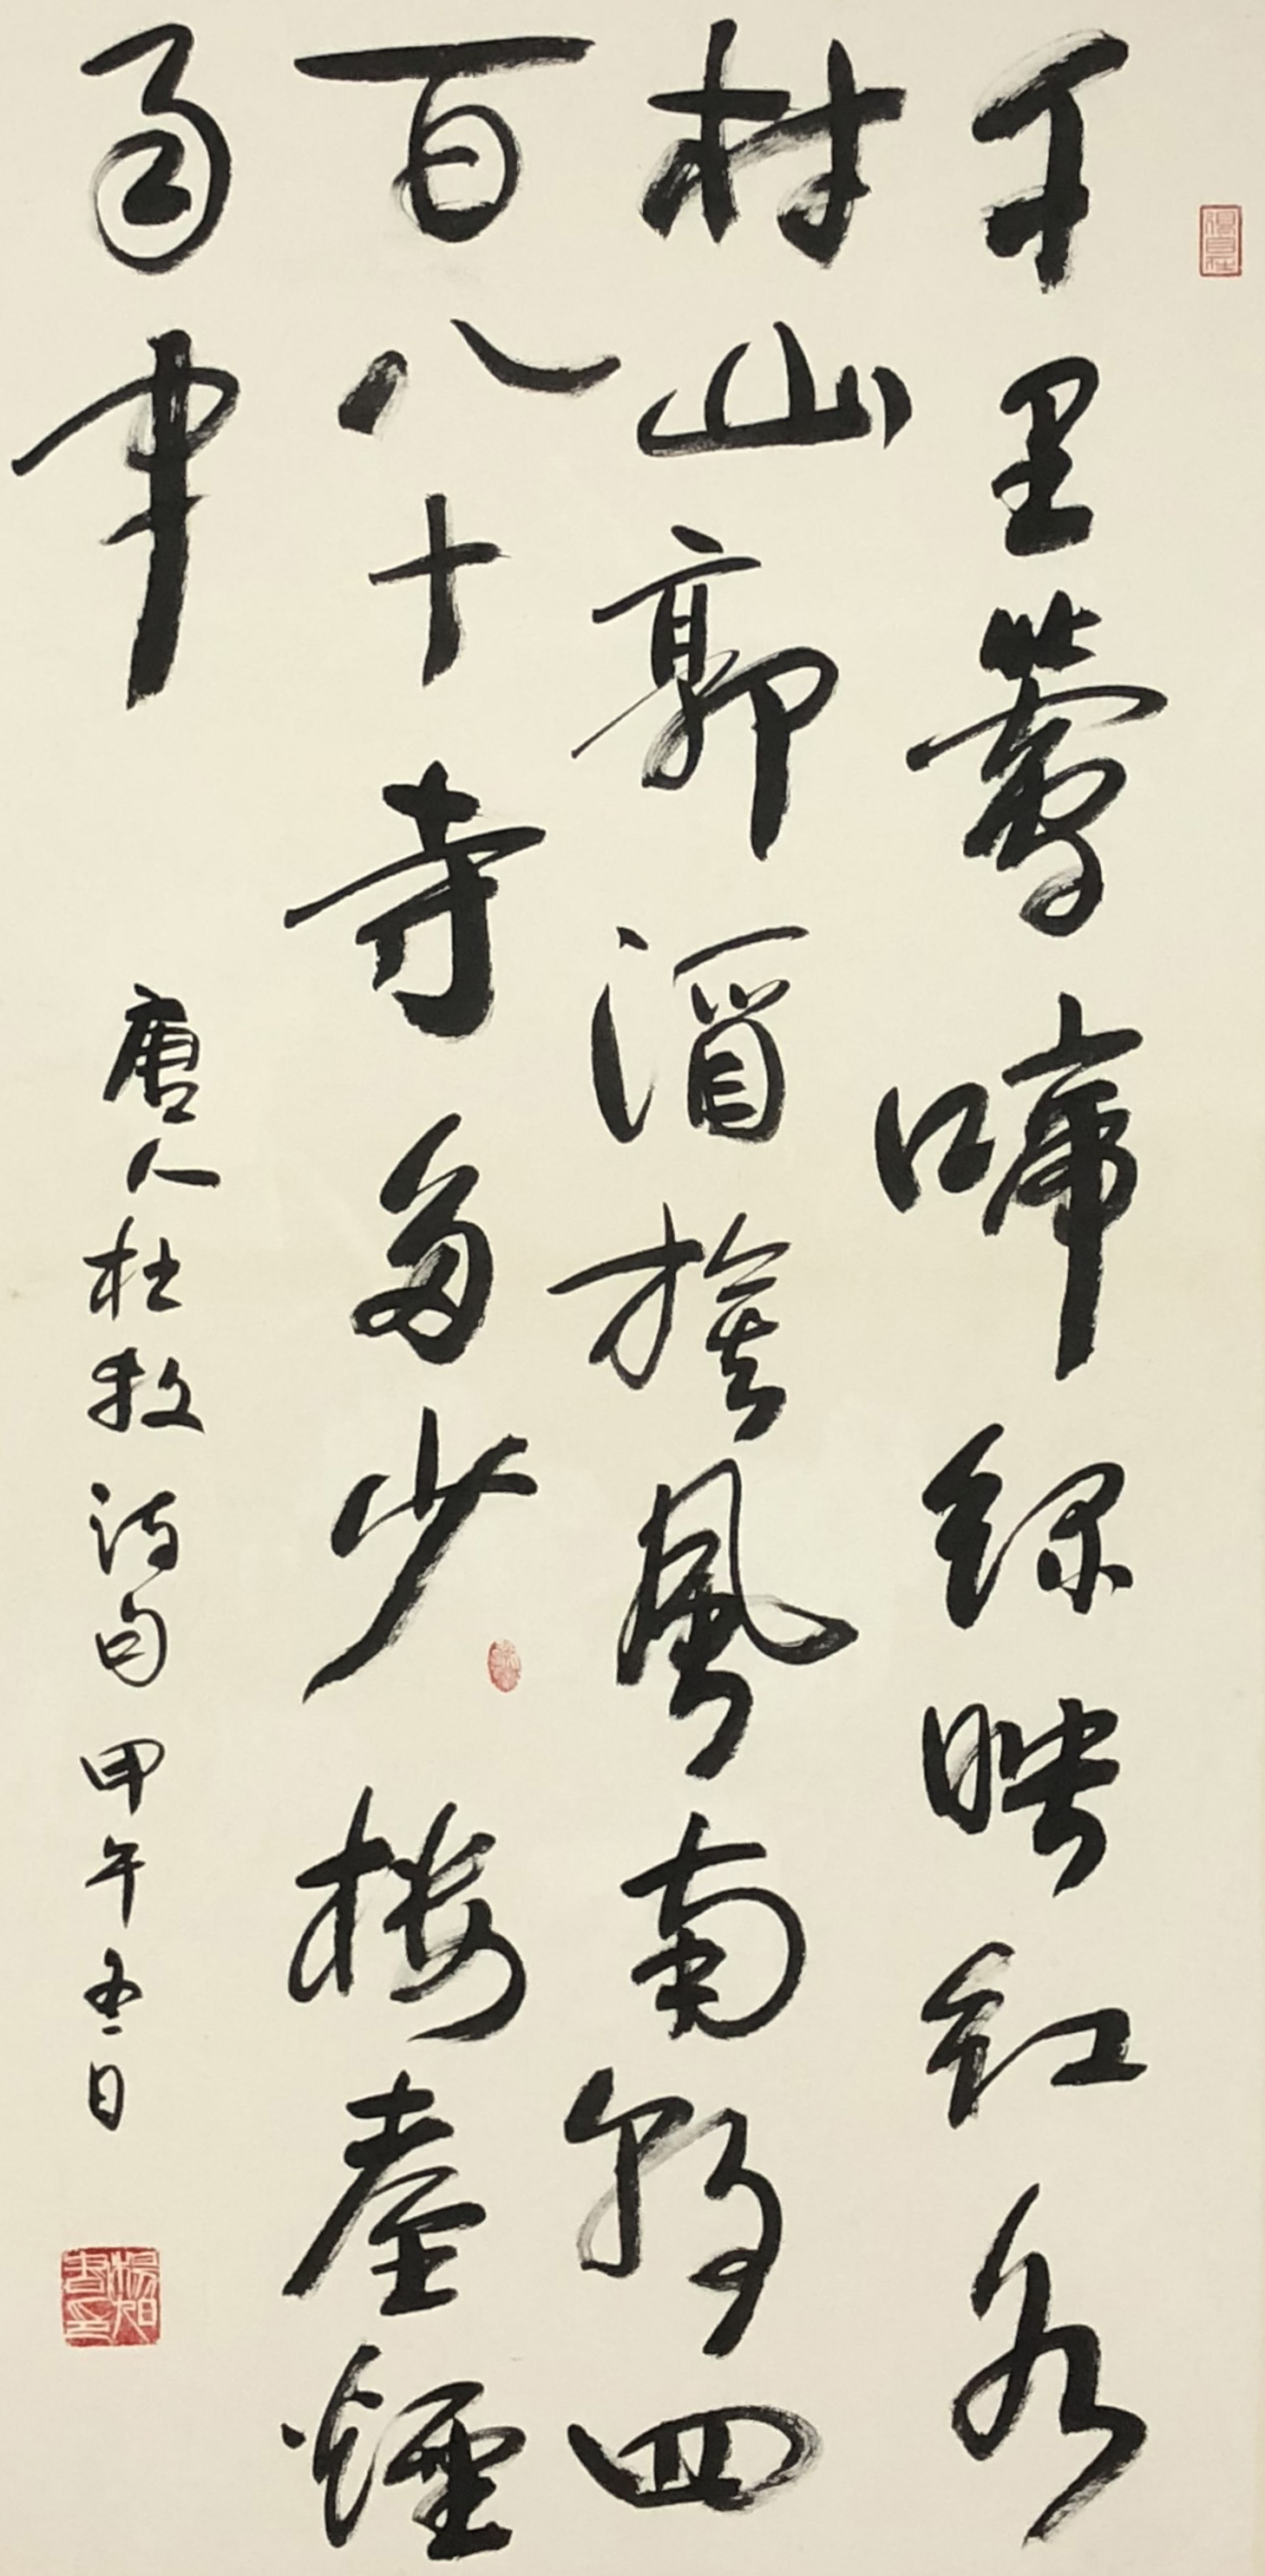 千里鶯啼綠映紅水
村山郭酒旗風南朝四
百八十寺多少樓臺煙
雨中
唐人杜牧詩句 甲午